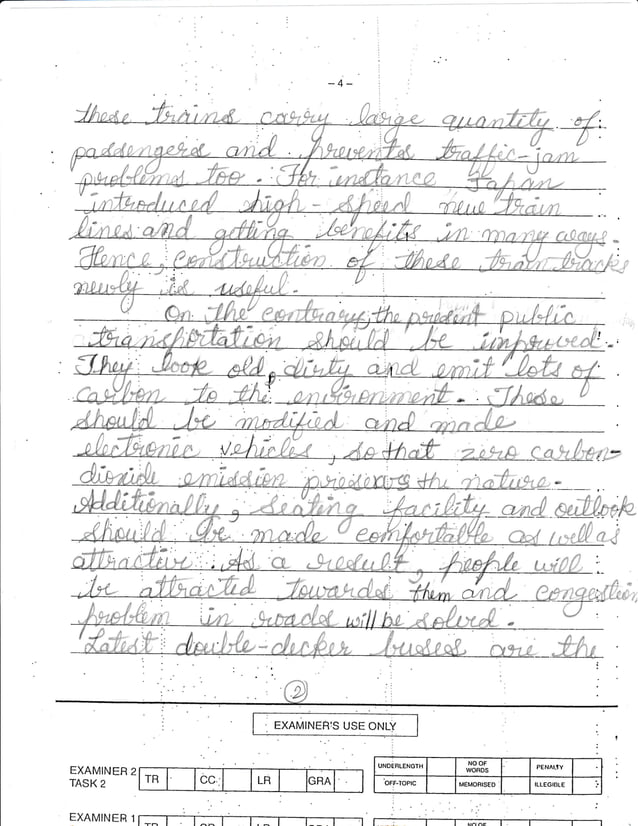 - 4 -
these trains carry large quantity of
passengers and prevents traffic-jam
problems too. For instance Japan
introduced high-speed new train
lines and getting benefits in many ways.
Hence, construction of these train tracks
newly is useful.
On the contrary, the present public
transportation should be improved.
They look old, dirty and emit lots of
carbon to the environment. These
should be modified and made
electronic vehicles, so that zero carbon-
dioxide emission preserves the nature.
Additionally, seating facility and outlook
should be made comfortable as well as
attractive. As a result, people will
be attracted towards them and congestion
problem in roads will be solved.
Latest double-decker buses are the
2
EXAMINER'S USE ONLY
EXAMINER 2 TASK 2 TR CC LR GRA UNDERLENGTH NO OF WORDS PENALTY
OFF-TOPIC MEMORISED ILLEGIBLE
EXAMINER 1